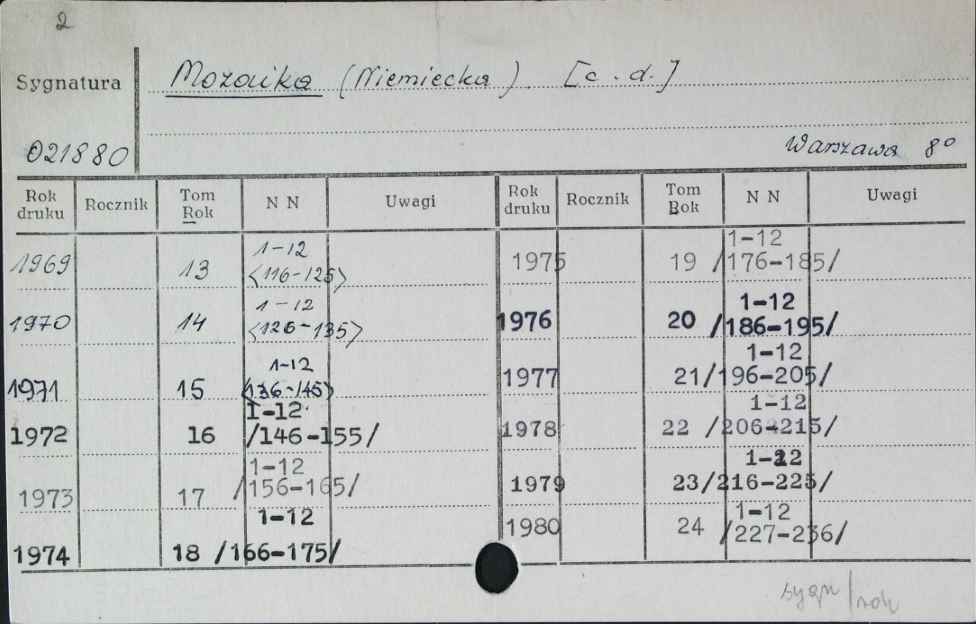 2
Sygnatura
Mozaika (Niemiecka) [c.d.]
021880
Warszawa 8°
Rok druku Rocznik Tom Rok N N Uwagi
1969 13 1-12 <116-125>
1970 14 1-12 <126-135>
1971 15 1-12 <136-145>
1972 16 1-12 /146-155/
1973 17 1-12 /156-165/
1974 18 1-12 /166-175/
Rok druku Rocznik Tom Rok N N Uwagi
1975 19 1-12 /176-185/
1976 20 1-12 /186-195/
1977 21 1-12 /196-205/
1978 22 1-12 /206-215/
1979 23 1-12 /216-225/
1980 24 1-12 /227-236/
sygn/rok